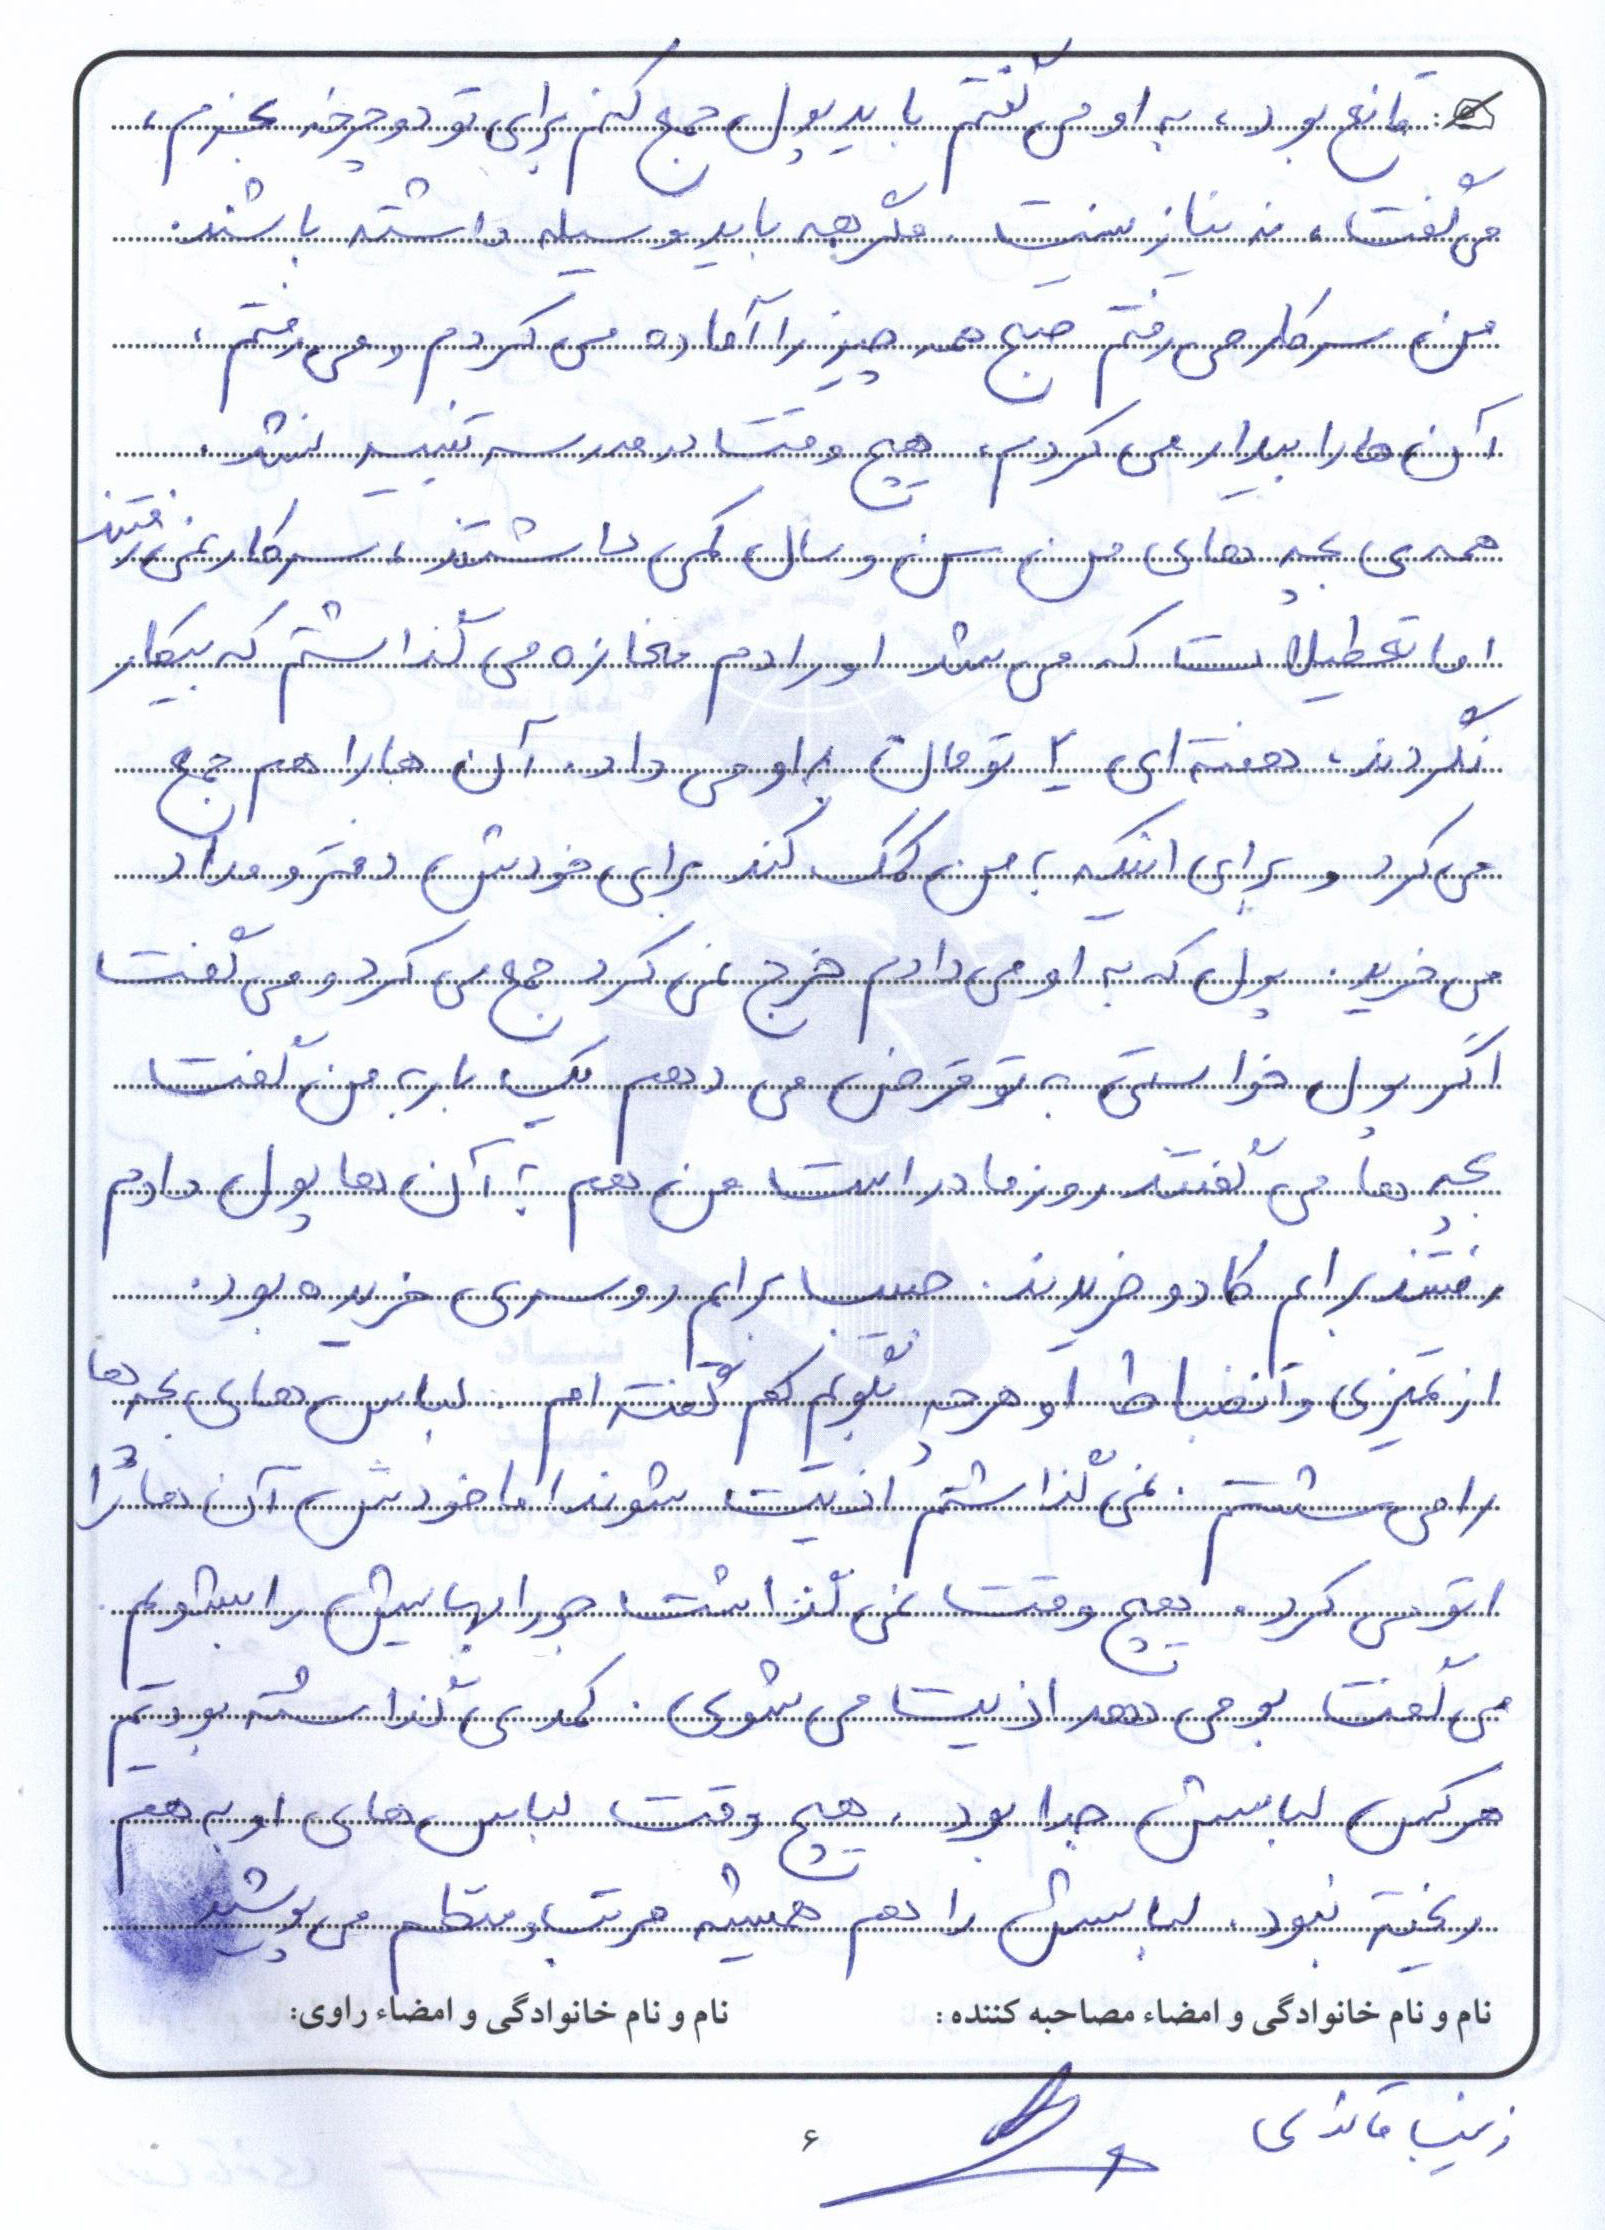 قانع بود، به او می گفتم باید پول جمع کنم برای تو دوچرخه بخرم،
می گفت، نه نیاز نیست. مگر همه باید وسیله داشته باشند.
من سرکار می رفتم صبح همه چیز را آماده می کردم و می رفتم،
آن ها را بیدار می کردم، هیچ وقت در مدرسه تنبیه نشد.
همه ی بچه های من سن و سال کمی داشتند، سرکار نمی رفتند
اما تعطیلات که می شد او را دم مغازه می گذاشتم که بیکار
نگردند، هفته ای ۲ تومان به او می داد. آن ها را هم جمع
می کرد و برای اینکه به من کمک کند برای خودش دفتر و مداد
می خرید. پول که به او می دادم خرج نمی کرد جمع می کرد و می گفت
اگر پول خواستی به تو قرض می دهم یک بار به من گفت
بچه ها می گفتند روز مادر است من هم به آن ها پول دادم
رفتند برایم کادو خریدند. حبیب برایم روسری خریده بود.
از تمیزی و انضباط او هرچه بگویم کم گفته ام. لباس های بچه ها
را می شستم. نمی گذاشتم اذیت شوند اما خودش آن ها را
اتو می کرد. هیچ وقت نمی گذاشت جورابهایش را بشویم.
می گفت بو می دهد اذیت می شوی. کمدی گذاشته بودیم
هرکس لباسش جدا بود، هیچ وقت لباس های او به هم
ریخته نبود. لباسش را هم همیشه مرتب و منظم می پوشید
نام و نام خانوادگی و امضاء مصاحبه کننده: نام و نام خانوادگی و امضاء راوی:
زینب قائدی
۶